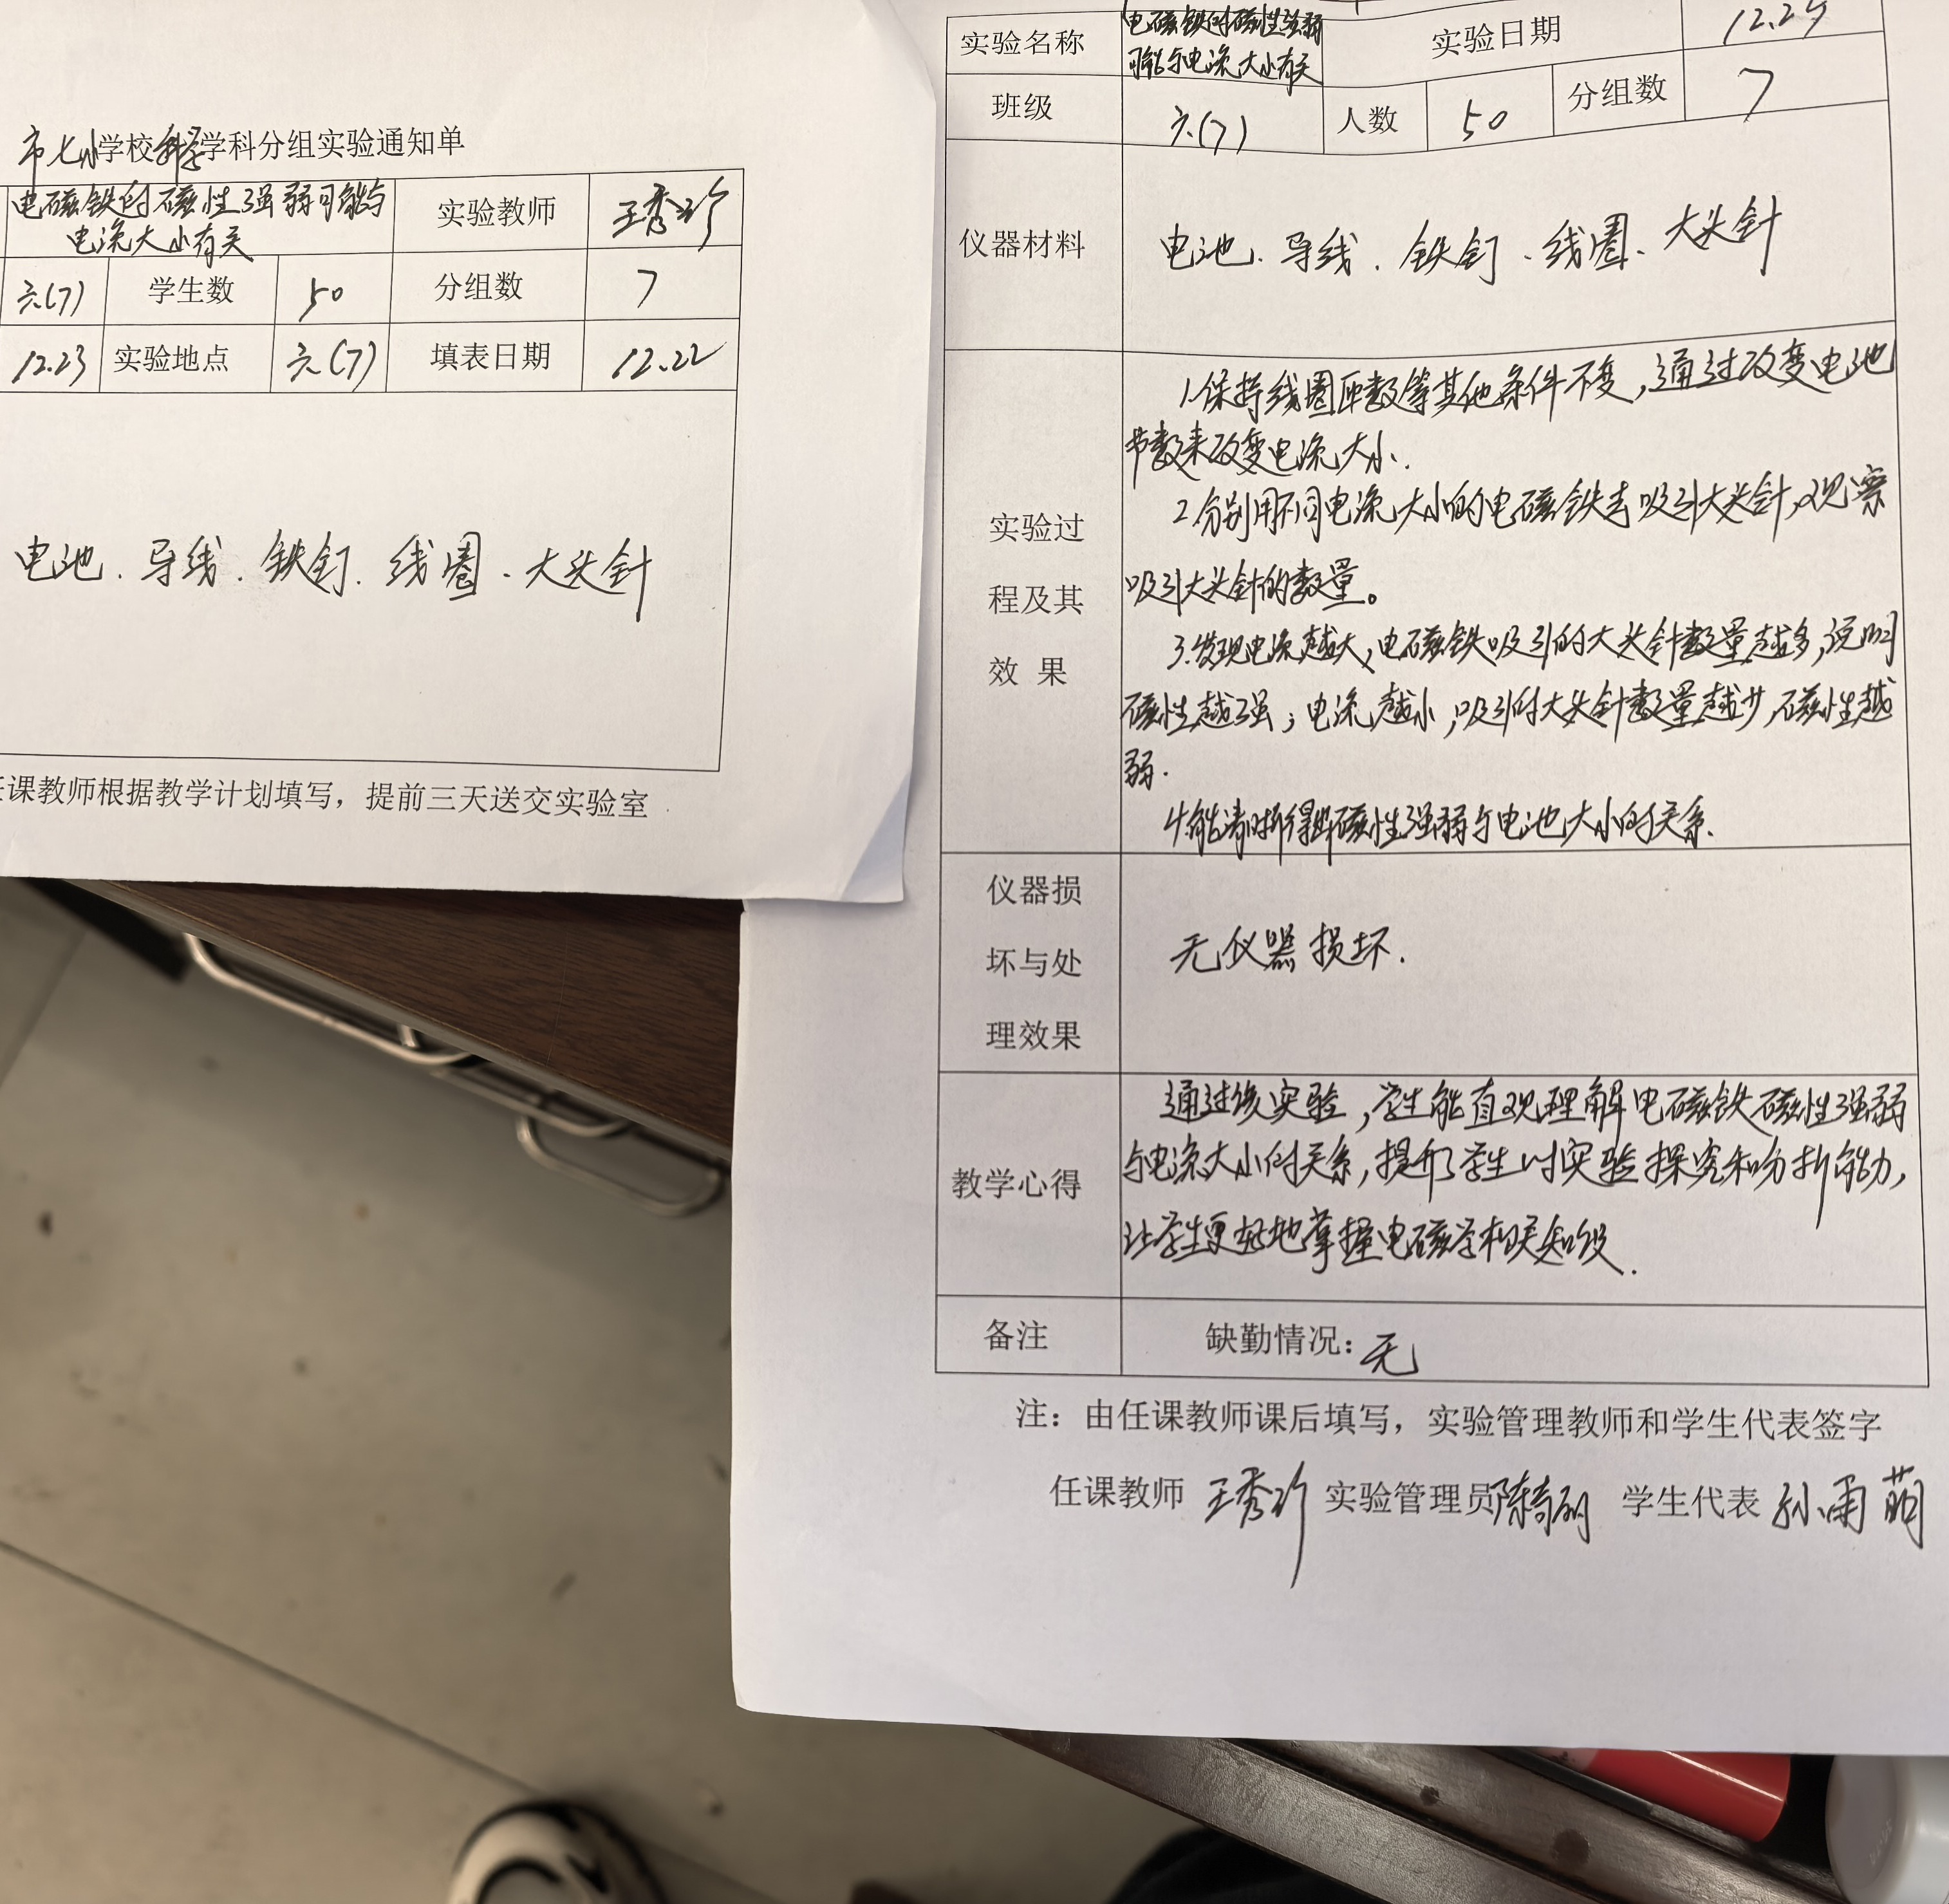 市七小学校科学学科分组实验通知单
电磁铁的磁性强弱可能与
电流大小有关
实验教师
王秀珍
六(7)
学生数
50
分组数
7
12.23
实验地点
六(7)
填表日期
12.22
电池、导线、铁钉、线圈、大头针
任课教师根据教学计划填写，提前三天送交实验室
实验名称
电磁铁的磁性强弱
可能与电流大小有关
实验日期
班级
六(7)
人数
50
分组数
7
仪器材料
电池、导线、铁钉、线圈、大头针
实验过
程及其
效 果
1.保持线圈匝数等其他条件不变，通过改变电池
节数来改变电流大小.
2.分别用不同电流大小的电磁铁去吸引大头针，观察
吸引大头针的数量。
3.发现电流越大，电磁铁吸引的大头针数量越多，说明
磁性越强；电流越小，吸引的大头针数量越少，磁性越
弱.
4.能清晰得出磁性强弱与电池大小的关系.
仪器损
坏与处
理效果
无仪器损坏.
教学心得
通过该实验，学生能直观理解电磁铁磁性强弱
与电流大小的关系，提升了学生对实验探究和分析能力，
让学生更好地掌握电磁学相关知识.
备注
缺勤情况：无
注：由任课教师课后填写，实验管理教师和学生代表签字
任课教师 王秀珍 实验管理员 学生代表 孙雨萌